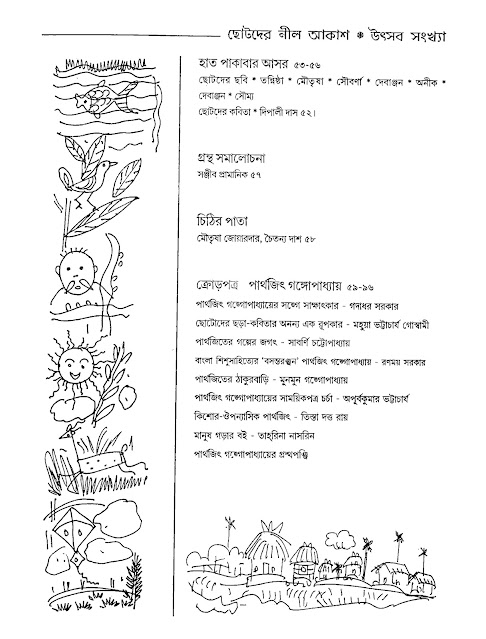 ছোটদের নীল আকাশ * উৎসব সংখ্যা
হাত পাকাবার আসর ৫৩-৫৬
ছোটদের ছবি * তন্নিষ্ঠা * মৌতৃষা * সৌবর্ণা * দেবাঞ্জন * অনীক *
দেবাঞ্জন * সৌম্য
ছোটদের কবিতা * দিপালী দাস ৫২।
গ্রন্থ সমালোচনা
সঞ্জীব প্রামানিক ৫৭
চিঠির পাতা
মৌতৃষা জোয়ারদার, চৈতন্য দাশ ৫৮
ক্রোড়পত্র পার্থজিৎ গঙ্গোপাধ্যায় ৫৯-৯৬
পার্থজিৎ গঙ্গোপাধ্যায়ের সঙ্গে সাক্ষাৎকার - গদাধর সরকার
ছোটোদের ছড়া-কবিতার অনন্য এক রূপকার - মহুয়া ভট্টাচার্য গোস্বামী
পার্থজিতের গল্পের জগৎ - সাবর্ণি চট্টোপাধ্যায়
বাংলা শিশুসাহিত্যের 'বসন্তরঞ্জন' পার্থজিৎ গঙ্গোপাধ্যায় - রণময় সরকার
পার্থজিতের ঠাকুরবাড়ি - মুনমুন গঙ্গোপাধ্যায়
পার্থজিৎ গঙ্গোপাধ্যায়ের সাময়িকপত্র চর্চা - অপূর্বকুমার ভট্টাচার্য
কিশোর-ঔপন্যাসিক পার্থজিৎ - তিস্তা দত্ত রায়
মানুষ গড়ার বই - তাহরিনা নাসরিন
পার্থজিৎ গঙ্গোপাধ্যায়ের গ্রন্থপঞ্জি